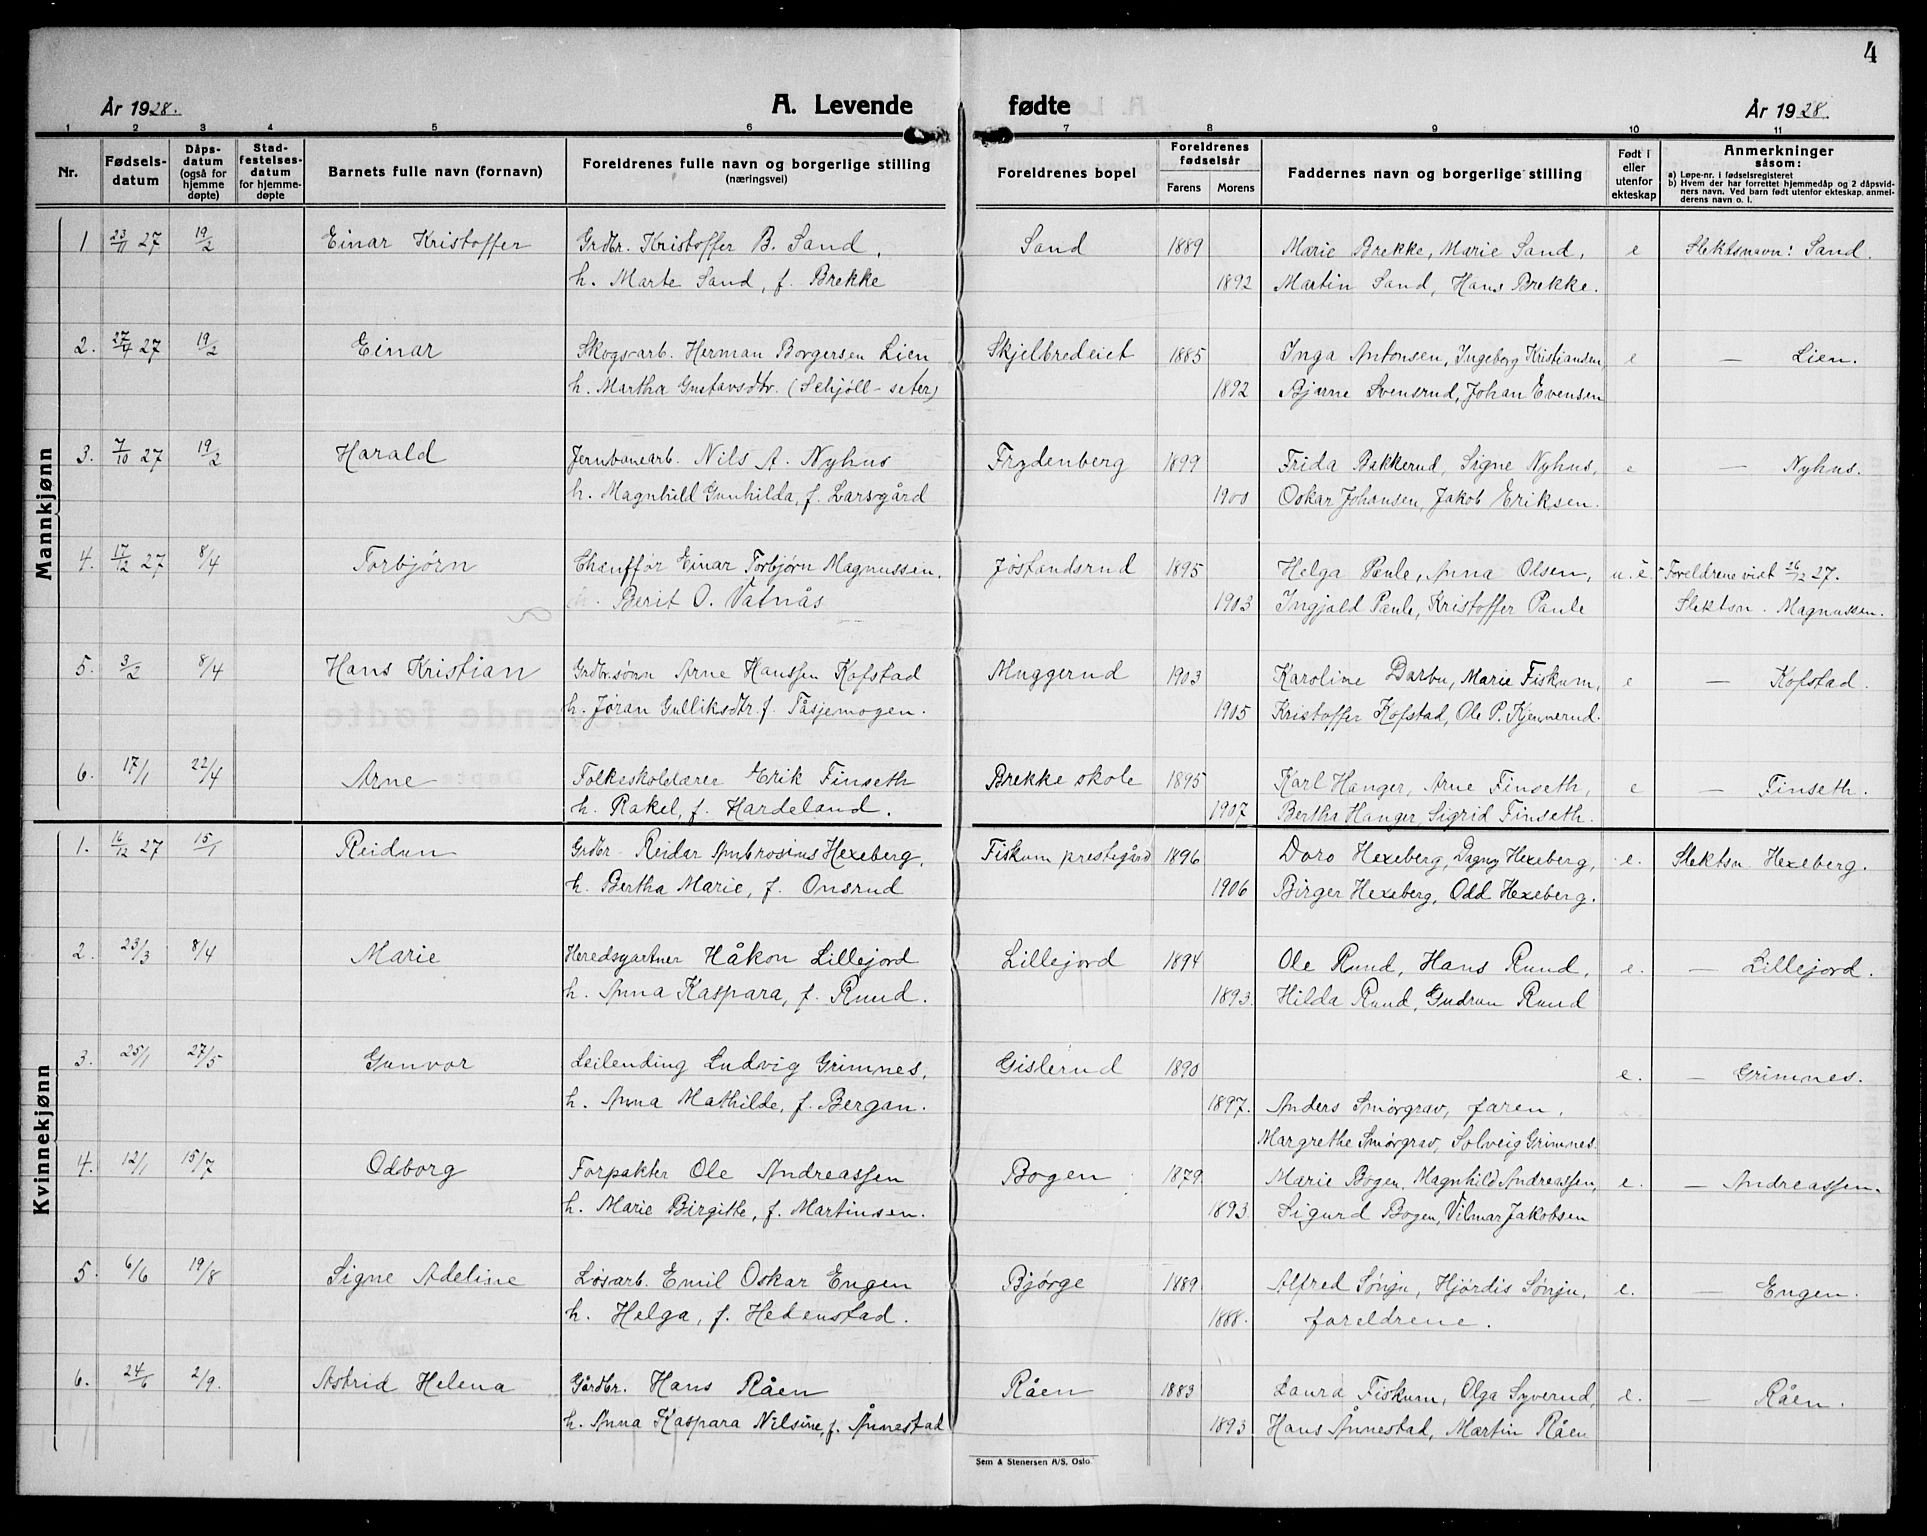 4
År 1928. A. Levende fødte År 1928.
1 2 3 4 5 6 7 8 9 10 11
Nr.
Fødsels-
datum
Dåps-
datum
(også for
hjemme
døpte)
Stad-
festelses-
datum
for hjemme-
døpte
Barnets fulle navn (fornavn)
Foreldrenes fulle navn og borgerlige stilling
(næringsvei)
Foreldrenes bopel
Foreldrenes
fødselsår
Farens Morens
Faddernes navn og borgerlige stilling
Født i
eller
utenfor
ekteskap
Anmerkninger
såsom:
a) Løpe-nr. i fødselsregisteret
b) Hvem der har forrettet hjemmedåp og 2 dåpsvid-
ners navn. Ved barn født utenfor ekteskap, anmel-
derens navn o. l.
Mannkjønn
1 23/11 27 19/2 Einar Kristoffer Grdbr. Kristoffer B. Sand, Sand 1889 Marie Brekke, Marie Sand, e Slektsnavn: Sand.
h. Marte Sand, f. Brekke 1892 Martin Sand, Hans Brekke.
2. 27 19/2 Einar Skogsarb. Herman Borgersen Lien Skjelbredeiet 1885 Inga Antonsen, Ingeborg Kristiansen, e — Lien.
h. Martha Gustavsdtr. (Schjøll-seter) 1892 Bjarne Svensrud, Johan Evensen
3. 7/10 27 19/2 Harald Jernbanearb. Nils A. Nyhus Frydenberg 1899 Frida Bakkerud, Signe Nyhus, e — Nyhus.
h. Magnhild Gunhilda, f. Larsgård 1900 Oskar Johansen, Jakob Eriksen.
4. 17/12 27 8/4 Torbjørn Chauffør Einar Torbjørn Magnussen. Jøslandsrud 1895 Helga Paule, Anna Olsen, u. e. Foreldrene viet 26/12 27.
Berit O. Vatnås 1903 Ingjald Paule, Kristoffer Paule Slektsn. Magnussen.
5. 3/2 8/4 Hans Kristian Grdbr.sønn Arne Hanssen Kofstad Muggerud 1903 Karoline Darbu, Marie Fiskum, e — Kofstad.
h. Jøran Gulliksdtr. f. Tåsjemogen. 1905 Kristoffer Kofstad, Ole P. Kjennerud.
6. 17/1 22/4 Arne Folkeskolelærer Erik Finseth Brekke skole 1895 Karl Hanger, Arne Finseth, e — Finseth.
h. Rakel, f. Hardeland. 1907 Bertha Hanger, Sigrid Finseth.
Kvinnekjønn
1. 16/12 27 15/1 Reidun Grdbr Reidar Ambrosius Hexeberg, Fiskum prestegård 1896 Doro Hexeberg, Dagny Hexeberg, e. Slektsn. Hexeberg.
h. Bertha Marie, f. Onsrud 1906 Birger Hexeberg, Odd Hexeberg.
2. 23/3 8/4 Marie Heredsgartner Håkon Lillejord Lillejord 1894 Ole Ruud, Hans Ruud, e. — Lillejord.
h. Anna Kaspara, f. Ruud. 1893. Hilda Ruud, Gudrun Ruud
3. 25/1 27/5 Gunvor Leilending Ludvig Grimnes, Gislerud 1890 e. — Grimnes.
h. Anna Mathilde, f. Bergan. 1897. Anders Smørgrav, faren,
Margrethe Smørgrav, Solveig Grimnes
4. 12/1 15/7 Odborg Forpakter Ole Andreassen Bogen 1879. Marie Bogen, Magnhild Andreassen, e. — Andreassen.
h. Marie Birgitte, f. Martinsen. 1893. Sigurd Bogen, Vilmar Jakobsen
5. 6/6 19/8 Signe Adeline Løsarb. Emil Oskar Engen Bjørge 1889. Alfred Sønju, Hjørdis Sønju, e. — Engen.
h. Helga, f. Hedenstad. 1888. foreldrene.
6. 24/6 2/9. Astrid Helena Gårdbr. Hans Råen Råen 1883 Laura Fiskum, Olga Syverud, e. — Råen.
h. Anna Kaspara Nilsine, f. Ånnestad 1893 Hans Ånnestad, Martin Råen
Sem & Stenersen A/S, Oslo.